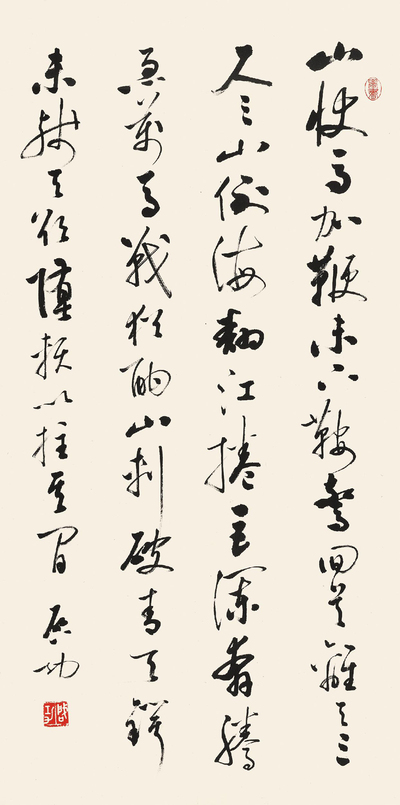 山快馬加鞭未下鞍驚回首離天三
尺三山倒海翻江捲巨瀾奔騰
急萬馬戰猶酣山刺破青天鍔
未殘天欲墮賴以拄其間 启功